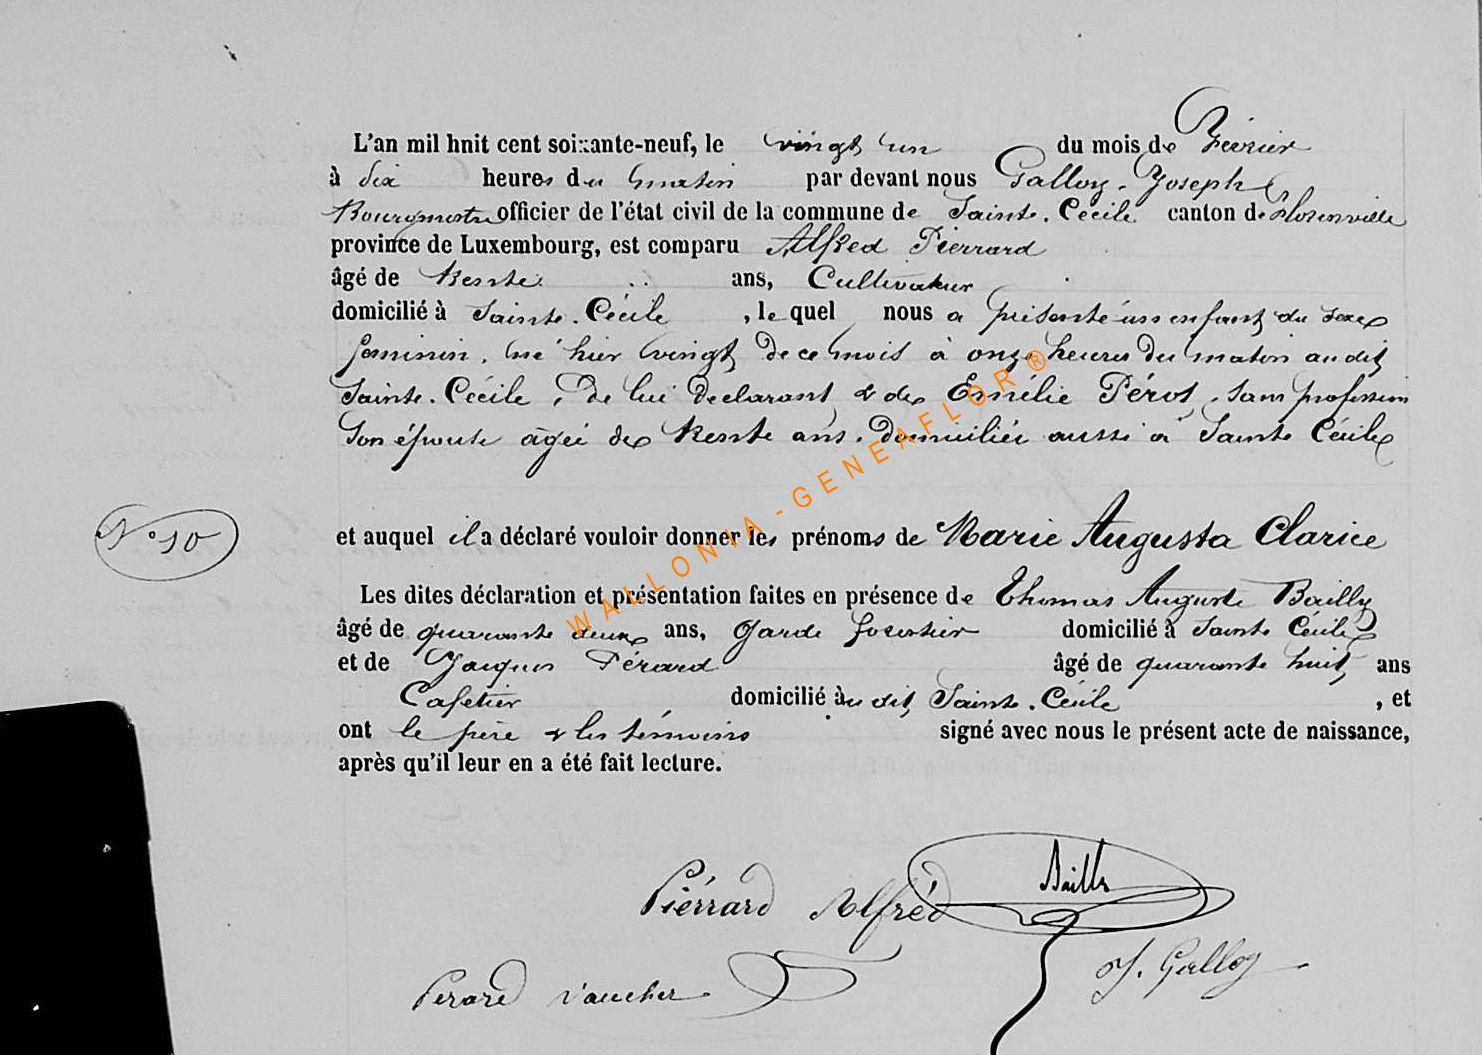 L'an mil huit cent soixante-neuf, le vingt un du mois de Février
à dix heures du matin par devant nous Galloy, Joseph
Bourgmestre officier de l'état civil de la commune de Sainte-Cécile canton de Florenville
province de Luxembourg, est comparu Alfred Pierrard
âgé de trente ans, Cultivateur
domicilié à Sainte-Cécile, lequel nous a présenté un enfant du sexe
feminin, né hier vingt de ce mois à onze heures du matin au dit
Sainte-Cécile, de lui declarant & de Emélie Pérot, sans profession
son épouse agée de trente ans, domiciliée aussi à Sainte Cécile
N° 10
et auquel il a déclaré vouloir donner les prénoms de Marie Augusta Clarice
Les dites déclaration et présentation faites en présence de Thomas Auguste Bailly
âgé de quarante deux ans, Garde forestier domicilié à Sainte Cécile
et de Jacques Pérard âgé de quarante huit ans
Cafetier domicilié àu dit Sainte-Cécile, et
ont le père & les témoins signé avec nous le présent acte de naissance,
après qu'il leur en a été fait lecture.
WALLONIA-GENEAFLOR®
Bailly
Piérrard Alfréd
J. Galloy
Perard Vaucher